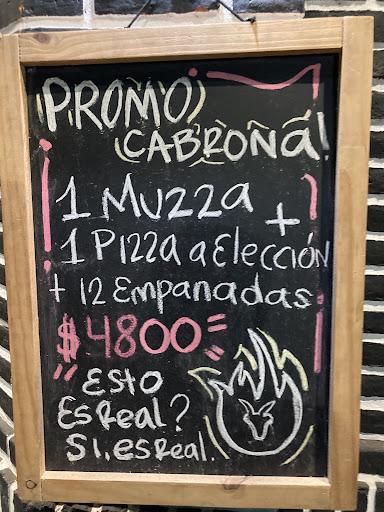 PROMO
CABRONA!
1 MUZZA +
1 PIZZA a Elección
+ 12 Empanadas
$4800=
Esto
Es Real?
Si, es Real.